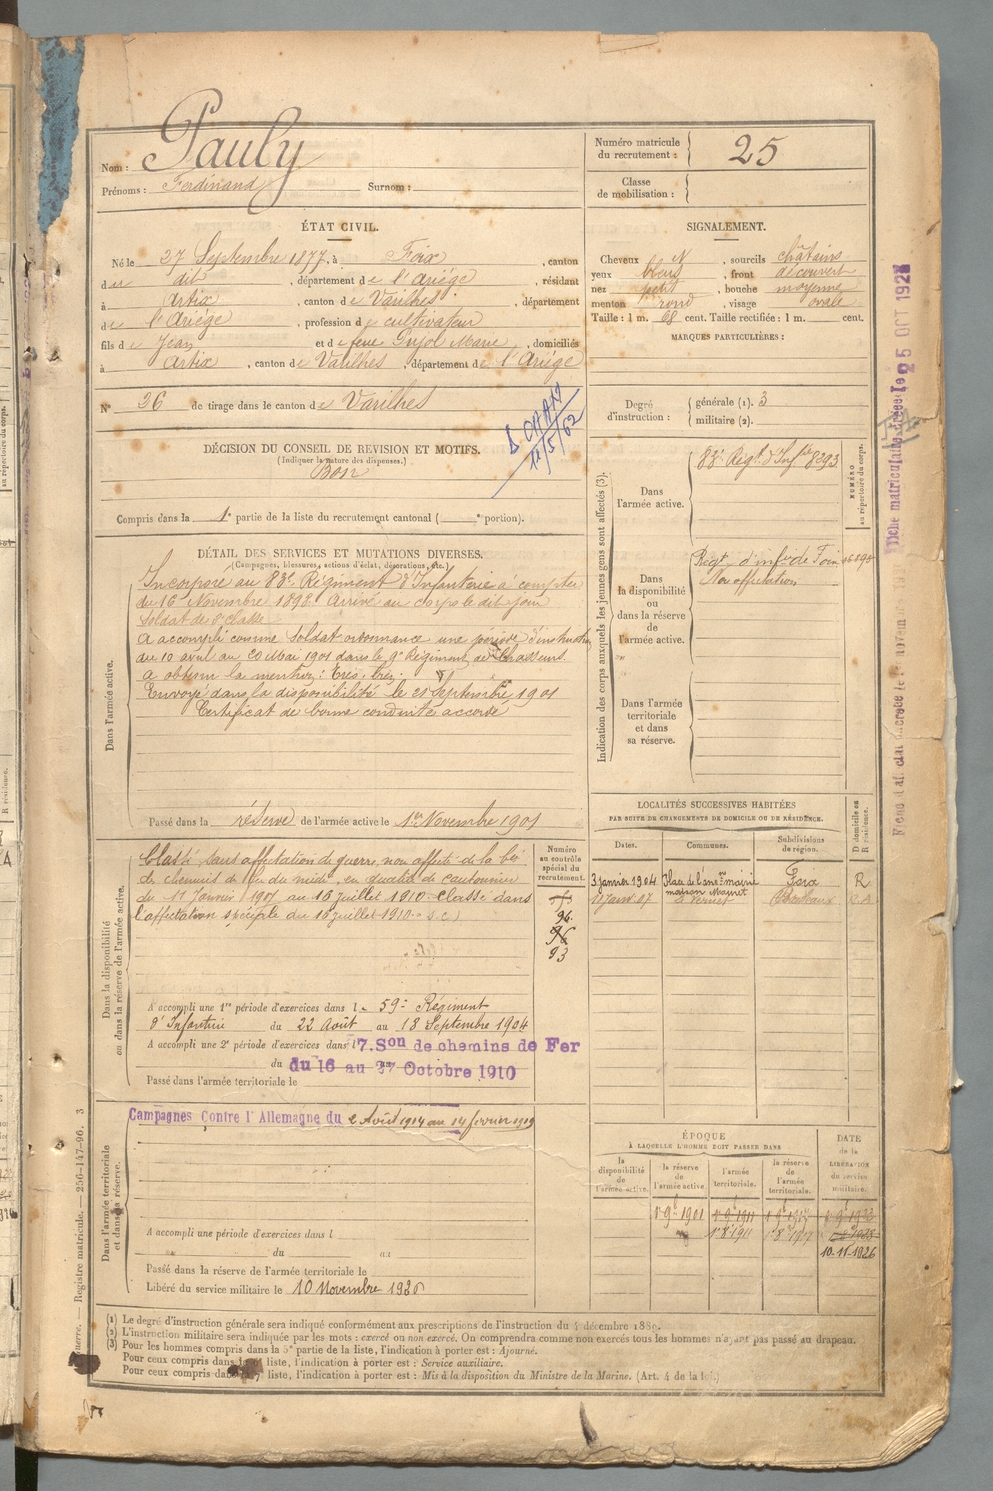 Nom : Pauly
Prénoms : Ferdinand Surnom :
Numéro matricule du recrutement : 25
Classe de mobilisation :
ÉTAT CIVIL.
Né le 27 Septembre 1877, à Foix, canton
du dit, département de l'Ariége, résidant
à Artix, canton de Varilhes, département
de l'Ariége, profession de cultivateur
fils de Jean et de feue Pujol Marie, domiciliés
à Artix, canton de Varilhes, département de l'Ariége
N° 26 de tirage dans le canton de Varilhes
SIGNALEMENT.
Cheveux N, sourcils châtains
yeux bleus, front découvert
nez petit, bouche moyenne
menton rond, visage ovale
Taille : 1 m. 68 cent. Taille rectifiée : 1 m. cent.
MARQUES PARTICULIÈRES :
Degré d'instruction : générale (1). 3
militaire (2).
DÉCISION DU CONSEIL DE REVISION ET MOTIFS.
(Indiquer la nature des dispenses.)
Bon
11/5/62
Compris dans la 1e partie de la liste du recrutement cantonal ( e portion).
DÉTAIL DES SERVICES ET MUTATIONS DIVERSES.
(Campagnes, blessures, actions d'éclat, décorations, etc.)
Dans l'armée active.
Incorporé au 83e Régiment d'Infanterie à compter
du 16 Novembre 1898. Arrivé au corps le dit jour
Soldat de 2e classe
A accompli comme soldat ordonnance une période d'instruction
du 10 avril au 20 Mai 1901 dans le 9e Régiment de Chasseurs.
a obtenu la mention : Très bien.
Envoyé dans la disponibilité le 21 Septembre 1901
Certificat de bonne conduite accordé
Passé dans la réserve de l'armée active le 1er Novembre 1901
Indication des corps auxquels les jeunes gens sont affectés (3).
NUMÉRO au répertoire du corps.
Dans l'armée active.
83e Régt d'Infie 8293
Dans la disponibilité ou dans la réserve de l'armée active.
Régt d'infie de Foix
Non affectation
Dans l'armée territoriale et dans sa réserve.
Dans la disponibilité ou dans la réserve de l'armée active.
Classé sans affectation de guerre, non affecté de la Cie
de chemins de fer du midi, en qualité de cantonnier
du 11 Janvier 1907 au 16 juillet 1910. Classé dans
l'affectation spéciale du 16 juillet 1910. S.C.
Numéro au contrôle spécial du recrutement.
94
96
93
A accompli une 1re période d'exercices dans le 59e Régiment
d'Infanterie du 22 Août au 18 Septembre 1904
A accompli une 2e période d'exercices dans l 7. Son de chemins de Fer
du du 16 au 27 Octobre 1910
Passé dans l'armée territoriale le
LOCALITÉS SUCCESSIVES HABITÉES
PAR SUITE DE CHANGEMENTS DE DOMICILE OU DE RÉSIDENCE.
Dates. Communes. Subdivisions de région. D domicile ou R résidence.
3 janvier 1904 Place de l'ancne mairie maison Maynet Foix R
11 janv. 07 Le Vernet R.A
Dans l'armée territoriale et dans sa réserve.
Campagnes Contre l'Allemagne du 2 Août 1914 au 14 février 1919
A accompli une période d'exercices dans l
du au
Passé dans la réserve de l'armée territoriale le
Libéré du service militaire le 10 Novembre 1926
ÉPOQUE
À LAQUELLE L'HOMME DOIT PASSER DANS
la disponibilité de l'armée active. la réserve de l'armée active. l'armée territoriale. la réserve de l'armée territoriale.
DATE de la LIBÉRATION du service militaire.
1er 9bre 1901
10-11-1926
(1) Le degré d'instruction générale sera indiqué conformément aux prescriptions de l'instruction du 4 décembre 1889.
(2) L'instruction militaire sera indiquée par les mots : exercé ou non exercé. On comprendra comme non exercés tous les hommes n'ayant pas passé au drapeau.
(3) Pour les hommes compris dans la 5e partie de la liste, l'indication à porter est : Ajourné.
Pour ceux compris dans la liste, l'indication à porter est : Service auxiliaire.
Pour ceux compris dans la 7e liste, l'indication à porter est : Mis à la disposition du Ministre de la Marine. (Art. 4 de la loi.)
Registre matricule. — 256-147-96. 3
Fiche matriculaire créée le 25 OCT 192